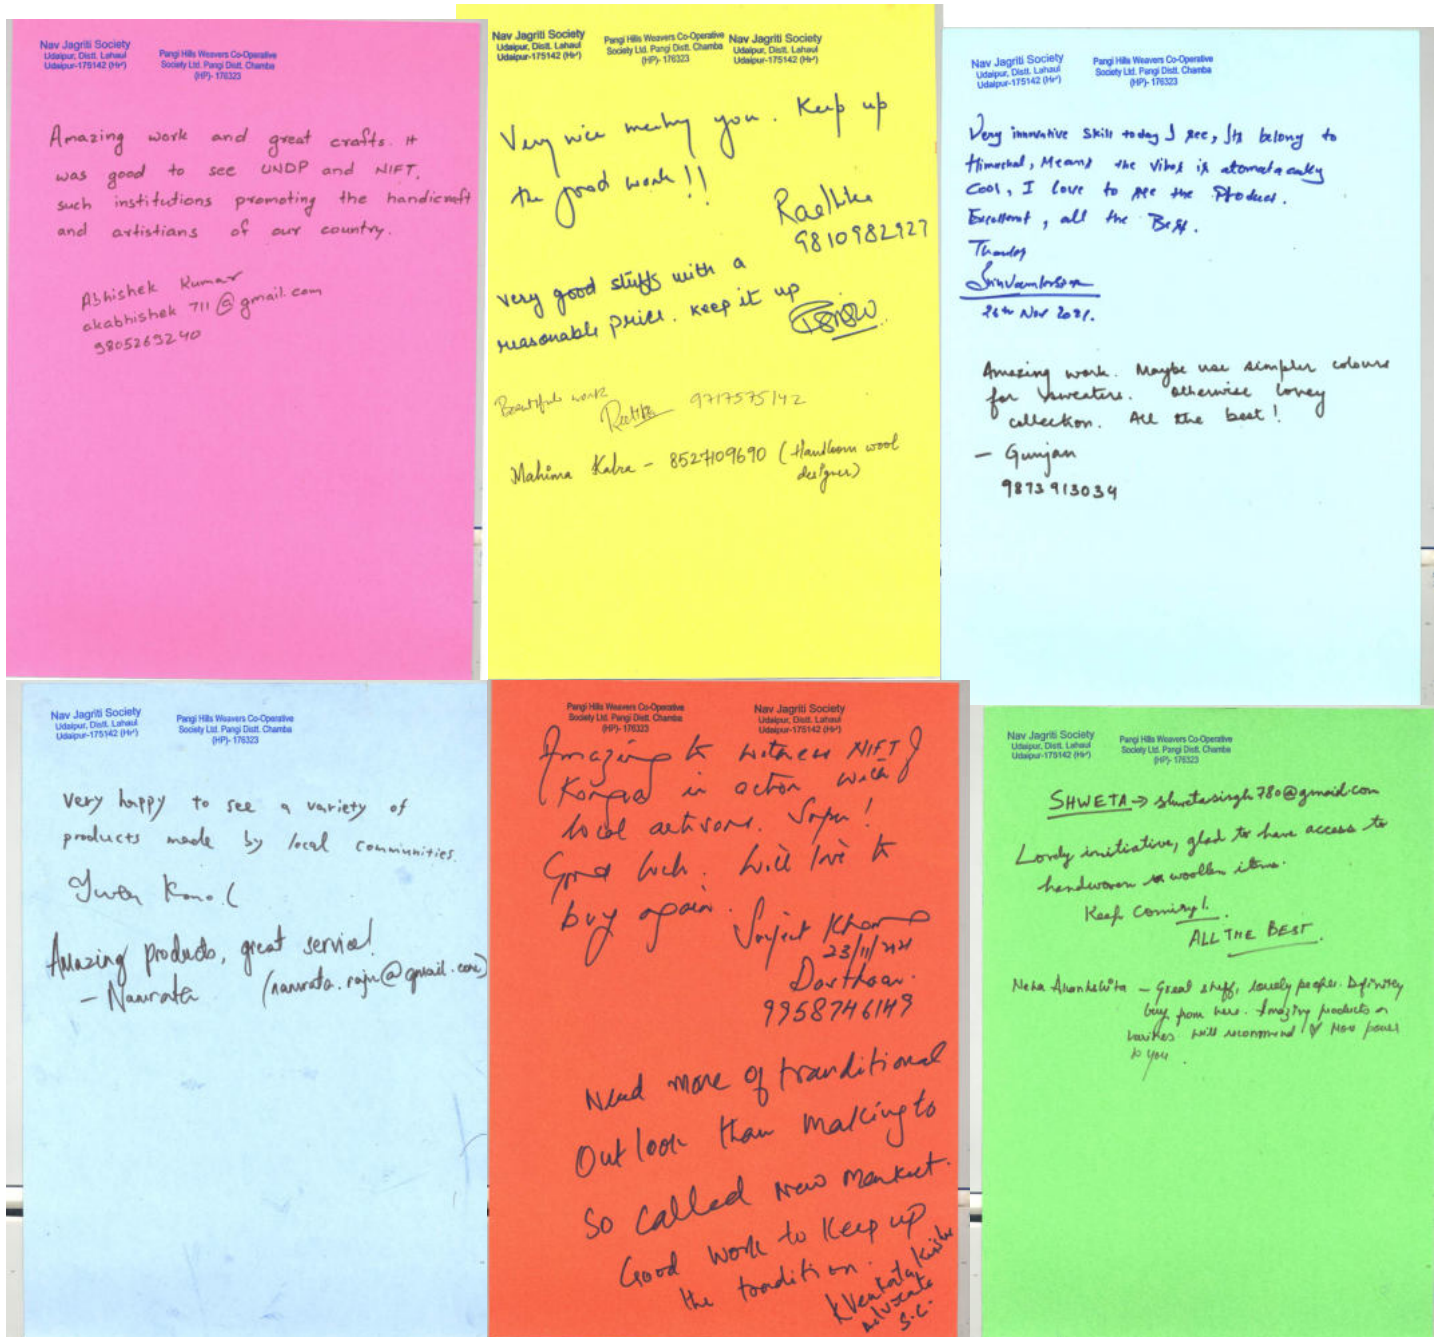 Nav Jagriti Society
Udaipur, Distt. Lahaul
Udaipur-175142 (HP)
Pangi Hills Weavers Co-Operative
Society Ltd. Pangi Distt. Chamba
(HP)- 176323
Amazing work and great crafts. It
was good to see UNDP and NIFT,
such institutions promoting the handicraft
and artistians of our country.
Abhishek Kumar
akabhishek 711@gmail.com
9805269240
Nav Jagriti Society
Udaipur, Distt. Lahaul
Udaipur-175142 (HP)
Pangi Hills Weavers Co-Operative
Society Ltd. Pangi Distt. Chamba
(HP)- 176323
Nav Jagriti Society
Udaipur, Distt. Lahaul
Udaipur-175142 (HP)
Very nice meeting you. Keep up
the good work!!
Radhika
9810982927
very good stuffs with a
reasonable price. keep it up
Beautiful work
9717575142
Mahima Kalra - 8527109690 (Handloom wool
designer)
Nav Jagriti Society
Udaipur, Distt. Lahaul
Udaipur-175142 (HP)
Pangi Hills Weavers Co-Operative
Society Ltd. Pangi Distt. Chamba
(HP)- 176323
Very innovative skill today I see, Its belong to
Himachal, Means the vibes is atomatacally
Cool, I love to see the Product.
Excellent, all the Best.
Thanks
26th Nov 2021.
Amazing work. Maybe use simpler colours
for sweaters. Otherwise lovey
collection. All the best!
- Gunjan
9873913034
Nav Jagriti Society
Udaipur, Distt. Lahaul
Udaipur-175142 (HP)
Pangi Hills Weavers Co-Operative
Society Ltd. Pangi Distt. Chamba
(HP)- 176323
very happy to see a variety of
products made by local communities.
Amazing products, great service!
- Namrata (namrata.raju@gmail.com)
Pangi Hills Weavers Co-Operative
Society Ltd. Pangi Distt. Chamba
(HP)- 176323
Nav Jagriti Society
Udaipur, Distt. Lahaul
Udaipur-175142 (HP)
Amazing to witness NIFT
Kangra in action with
local artisans. Super!
Good luck. Will love to
buy again.
23/11/2021
9958746149
Need more of tranditional
Outlook than making to
so called New Market.
Good work to keep up
the tradition.
K Venkata
Advocate
S.C.
Nav Jagriti Society
Udaipur, Distt. Lahaul
Udaipur-175142 (HP)
Pangi Hills Weavers Co-Operative
Society Ltd. Pangi Distt. Chamba
(HP)- 176323
SHWETA → shwetasingh780@gmail.com
Lovely initiative, glad to have access to
handwoven woollen items.
Keep Coming!.
ALL THE BEST.
Neha - Great stuff, lovely people. Definitely
buy from here. Amazing products
will recommend More power
to you.